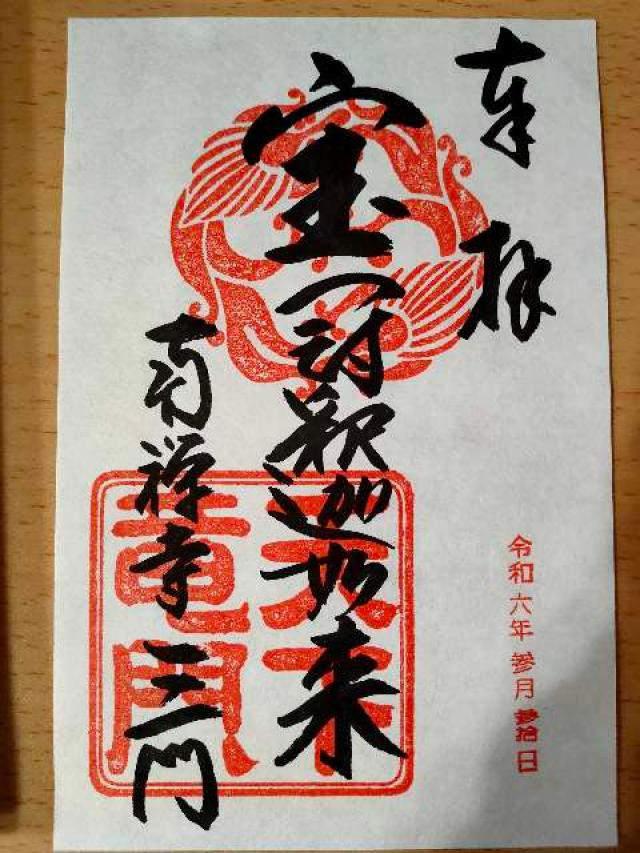 奉拝
宝冠釈迦如来
南禅寺 三門
天下
竜門
令和六年参月参拾日